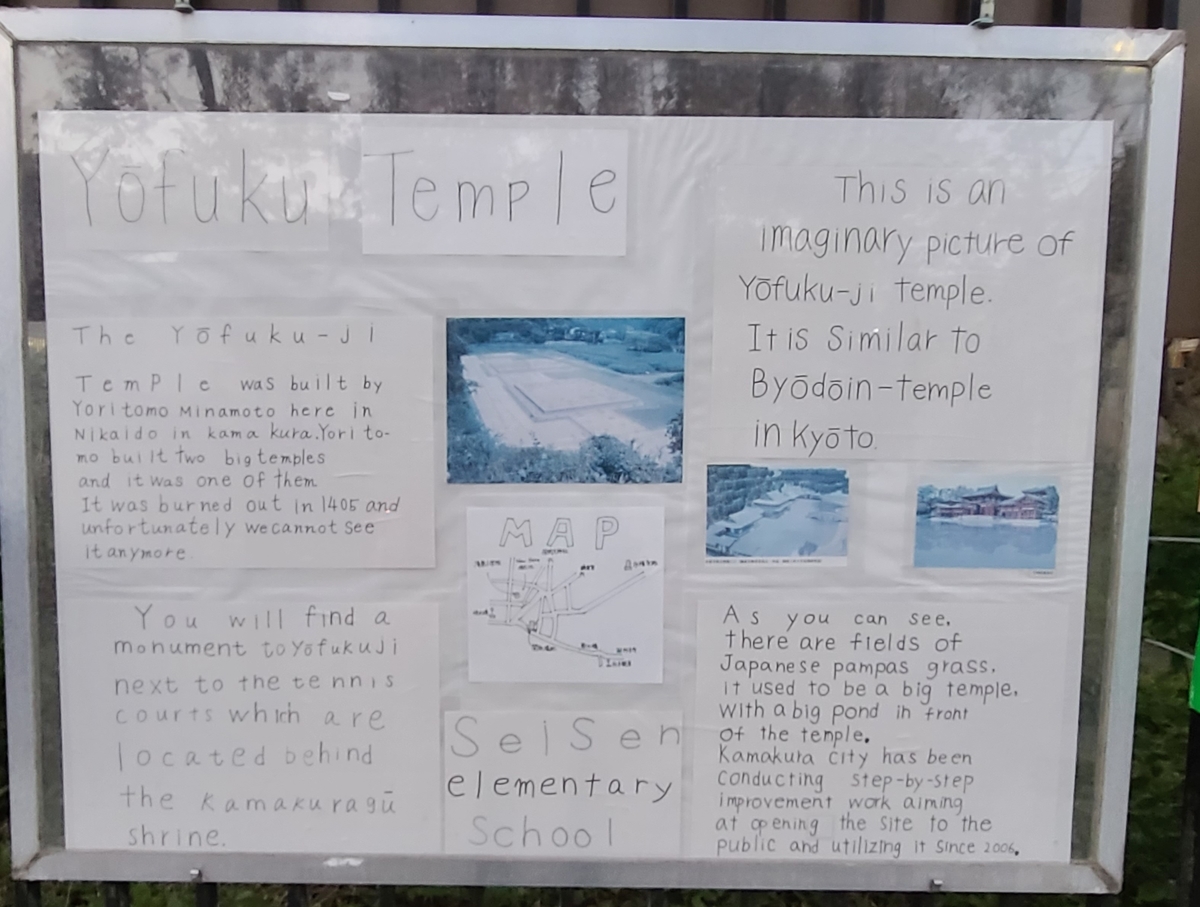 Yōfuku Temple
The Yōfuku-Ji
Temple was built by
Yoritomo Minamoto here in
Nikaido in kama kura. Yorito-
mo built two big temples
and it was one of them
It was burned out in 1405 and
unfortunately we cannot see
it anymore.
You will find a
monument to Yōfukuji
next to the tennis
courts which are
located behind
the Kamakuragū
shrine.
MAP
SeiSen
elementary
School
This is an
imaginary picture of
Yōfuku-ji temple.
It is Similar to
Byōdōin-temple
in Kyōto.
As you can see,
there are fields of
Japanese pampas grass.
it used to be a big temple,
with a big pond in front
of the temple.
Kamakura city has been
conducting step-by-step
improvement work aiming
at opening the site to the
public and utilizing it since 2006.